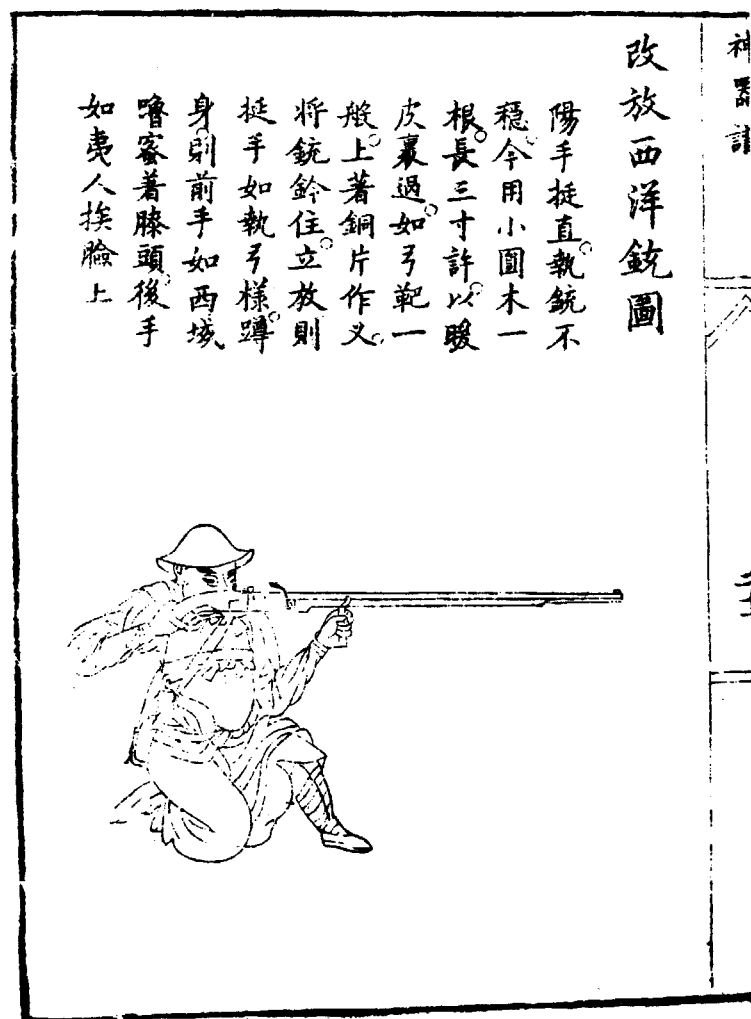 神器譜
改放西洋銃圖
陽手挺直執銃不
穩今用小圓木一
根長三寸許以暖
皮裹過如弓靶一
般上著銅片作义
將銃鈴住立放則
挺手如執弓樣蹲
身則前手如西域
嚕蜜着膝頭後手
如夷人挨臉上